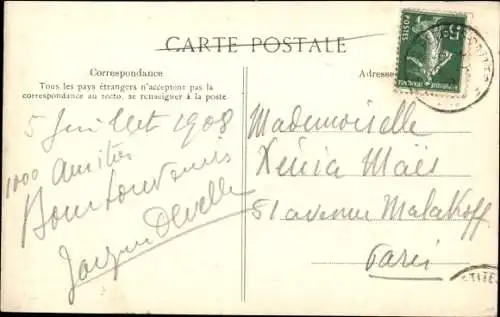 CARTE POSTALE
Correspondance
Tous les pays étrangers n'acceptent pas la
correspondance au recto, se renseigner à la poste.
Adresse
5 Juillet 1908
1000 Amitiés
Bons souvenirs
Jacques Develle
Mademoiselle
Xénia Maës
51 avenue Malakoff
Paris
POSTES
5